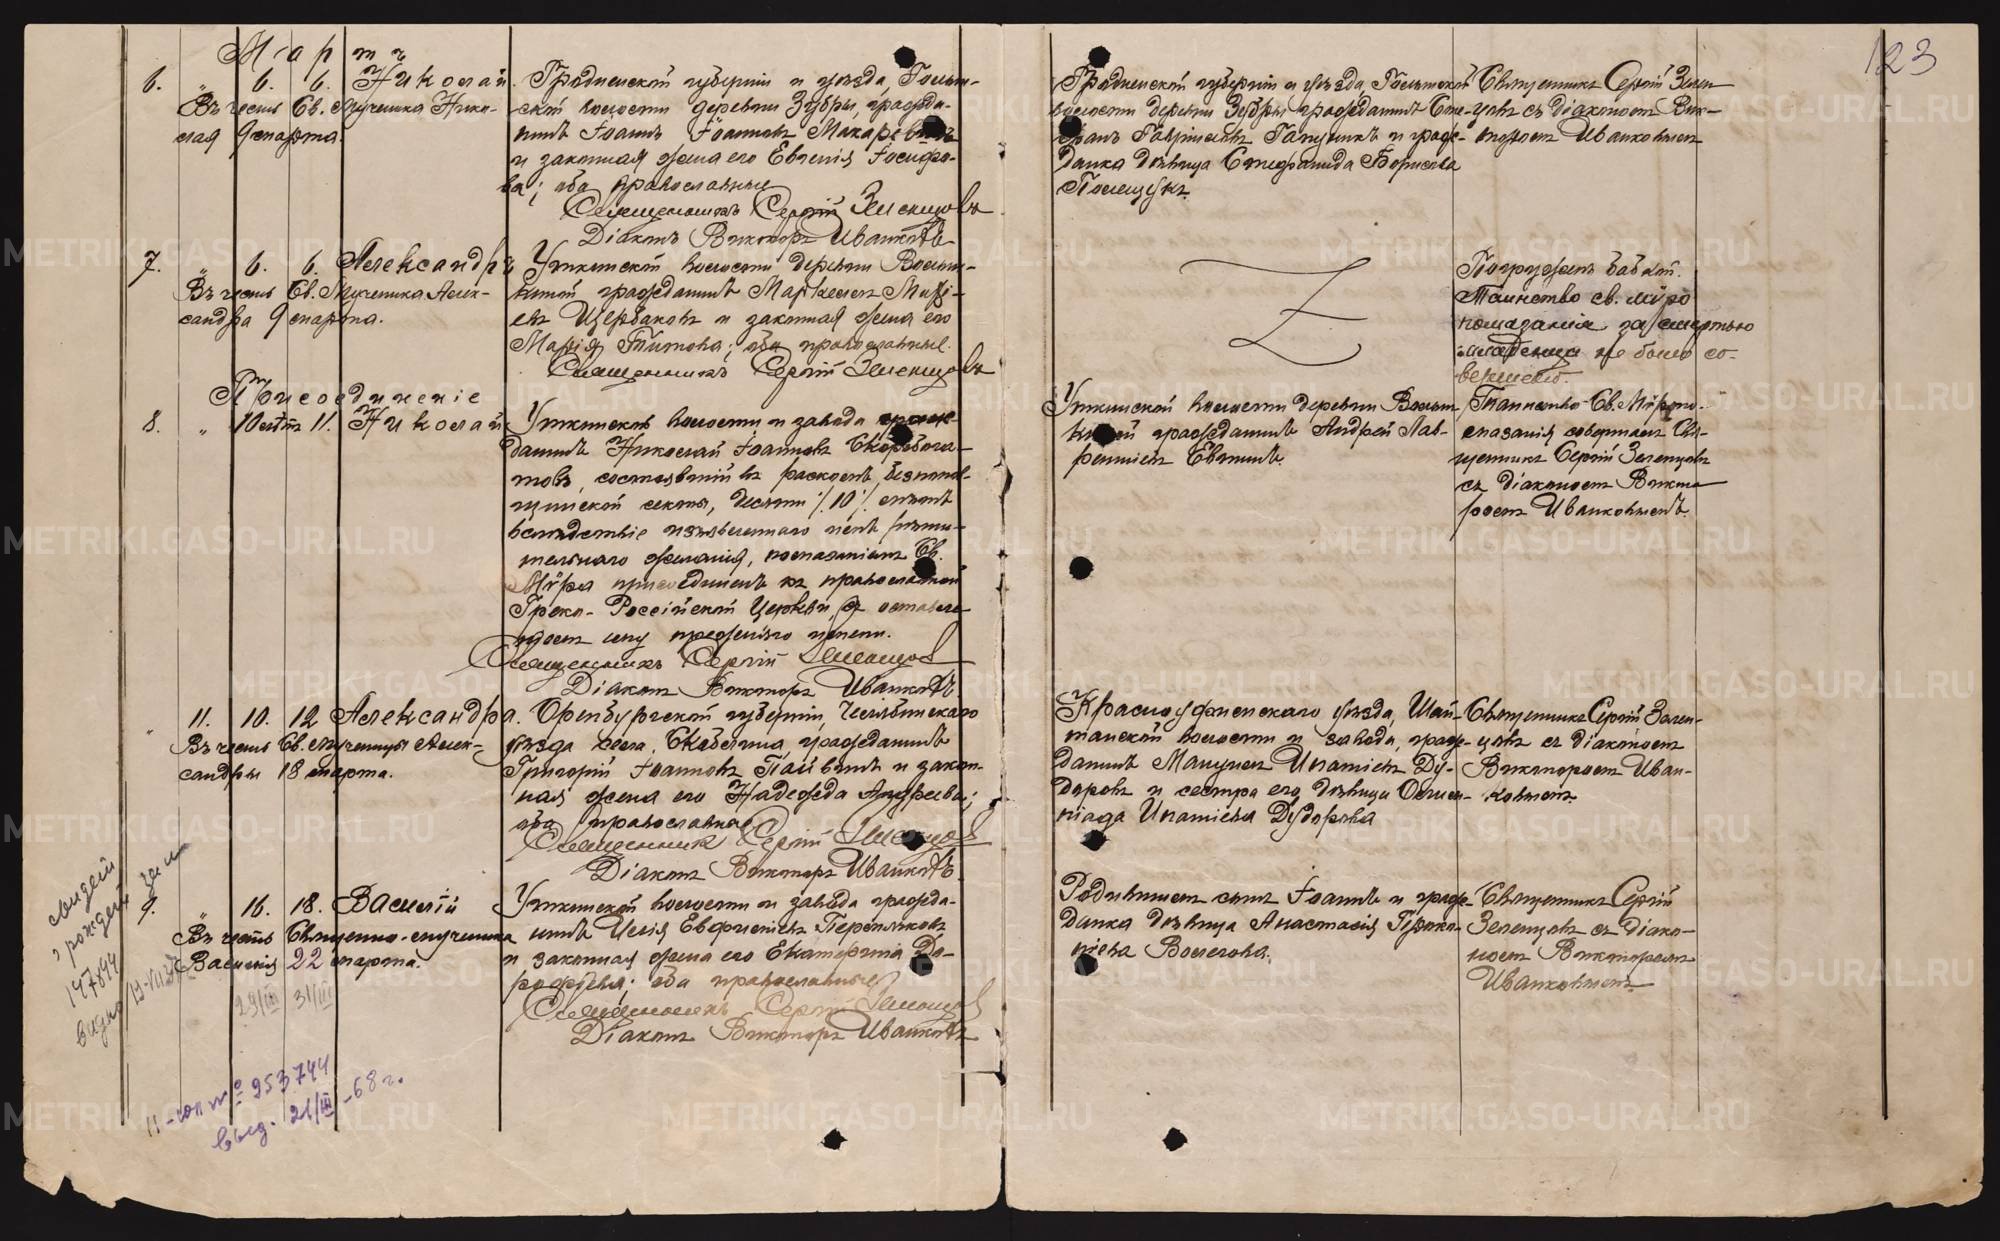 123
Мартъ
6. " 6. 6. Николай.
Въ честь Св. мученика Нико-
лая 9 марта.
Гродненской губерніи и уѣзда, Гольн-
ской волости деревни Зубры, гражда-
нинъ Іоаннъ Іоанновъ Макаревичъ
и законная жена его Евгенія Іосифо-
ва; оба православные
Священникъ Сергій Зеленцовъ
Діаконъ Викторъ Иванковъ
Гродненской губерніи и уѣзда, Гольнской
волости деревни Зубры гражданинъ Сте-
фанъ Гавріиловъ Гапужикъ и граж-
данка дѣвица Стефанида Борисова
Полещукъ.
Священникъ Сергій Зелен-
цовъ съ діакономъ Вик-
торомъ Иванковымъ
7. " 6. 6. Александръ
Въ честь Св. Мученика Алек-
сандра 9 марта.
Уткинской волости деревни Волын-
киной гражданинъ Маркеллъ
Щербаковъ и законная жена его
Марія Титова; оба православные.
Священникъ Сергій Зеленцовъ
Погруженъ бабкой.
Таинство св. мѵро
помазанія за смертью
младенца не было со-
вершено.
Присоединеніе
8. " 10 11. Николай
Уткинской волости и завода граж-
данинъ Николай Іоанновъ Скоробога-
товъ, состоявшій въ расколѣ, безпопов-
щинской секты, десяти /10/ лѣтъ
вслѣдствіе изъявленнаго имъ рѣши-
тельнаго желанія, помазаніемъ Св.
Мѵра присоединенъ къ православной
Греко-Россійской Церкви, съ оставле-
ніемъ ему прежняго имени.
Священникъ Сергій Зеленцовъ
Діаконъ Викторъ Иванковъ
Уткинской волости деревни Волын
киной гражданинъ Андрей Лав-
рентіевъ Евтинъ.
Таинство Св. Мѵропо-
мазанія совершилъ Свя-
щенникъ Сергій Зеленцовъ
съ діакономъ Викто-
ромъ Иванковымъ.
" 11. 10. 12 Александра.
Въ честь Св. мученицы Алек-
сандры 18 марта.
Оренбургской губерніи, Челябинскаго
уѣзда села Скоблина, гражданинъ
Григорій Іоанновъ Пайвинъ и закон-
ная жена его Надежда Андреева;
оба православные
Священникъ Сергій Зеленцовъ
Діаконъ Викторъ Иванковъ
Красноуфимскаго уѣзда, Шай-
танской волости и завода, граж-
данинъ Мануилъ Ипатіевъ Ду-
доровъ и сестра его, дѣвица Олим-
піада Ипатіева Дудорова
Священникъ Сергій Зелен-
цовъ съ діакономъ
Викторомъ Иван-
ковымъ.
9. " 16. 18. Василій
Въ честь Священно-мученика
Василія 22 марта.
29/III 31/III
Уткинской волости и завода гражда-
нинъ Илія Евфиміевъ Перепелковъ
и законная жена его Екатерина До-
рофеева; оба православные
Священникъ Сергій Зеленцовъ
Діаконъ Викторъ Иванковъ
Родившихъ сынъ Іоаннъ и граж-
данка дѣвица Анастасія Проко-
піева Волегова.
Священникъ Сергій
Зеленцовъ съ діако-
номъ Викторомъ
Иванковымъ.
свидет
о рождей
147844
выдано
II-юл № 253744
выд. 21/III-68 г.